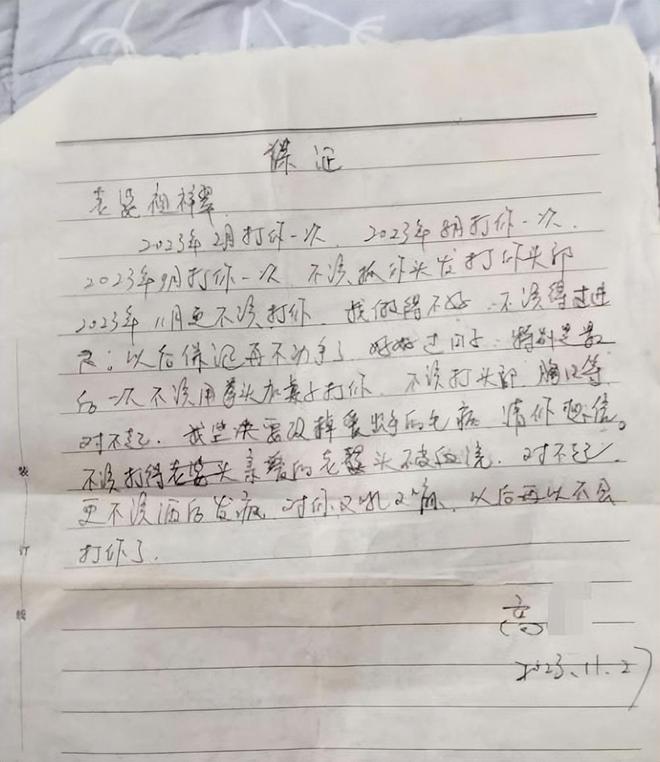 保证
老婆祖祥翠
2023年2月打你一次、2023年8月打你一次、
2023年9月打你一次、不该抓你头发打你头部
2023年11月更不该打你、我做得不好、不该得过进
尺；以后保证再不动手了 好好过日子；特别是最
后一次不该用拳头加凳子打你、不该打头部、胸口等
对不起、我坚决要改掉爱出手的毛病 请你相信。
不该打得老婆头 亲爱的老婆头不破血流、对不起、
更不该酒后发疯 对你又吼又 以后再以不会
打你了.
高
2023.11.27
装
订
线